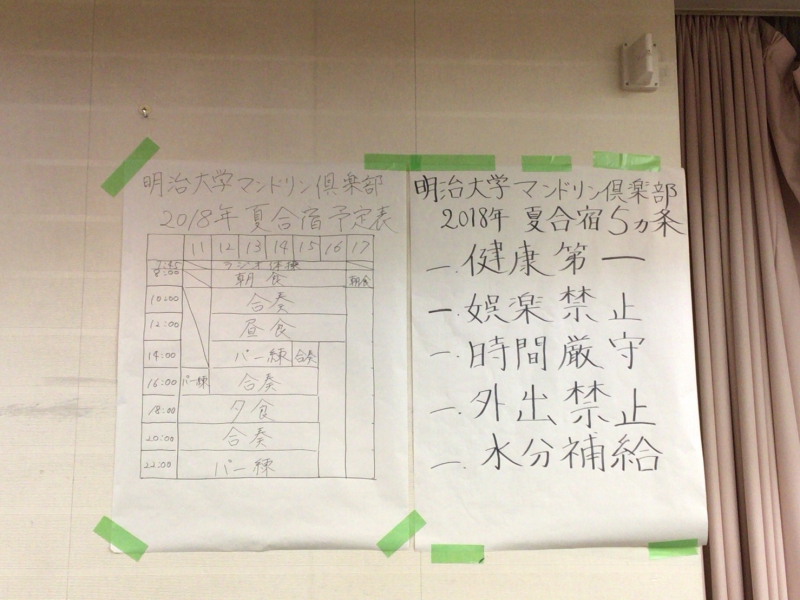 明治大学マンドリン倶楽部
2018年 夏合宿予定表
11 12 13 14 15 16 17
7:45 ラジオ体操
8:00 朝食 朝食
10:00 合奏
12:00 昼食
14:00 パー練 合奏
16:00 パー練 合奏
18:00 夕食
20:00 合奏
22:00 パー練
明治大学マンドリン倶楽部
2018年 夏合宿5ヵ条
一. 健康第一
一. 娯楽禁止
一. 時間厳守
一. 外出禁止
一. 水分補給